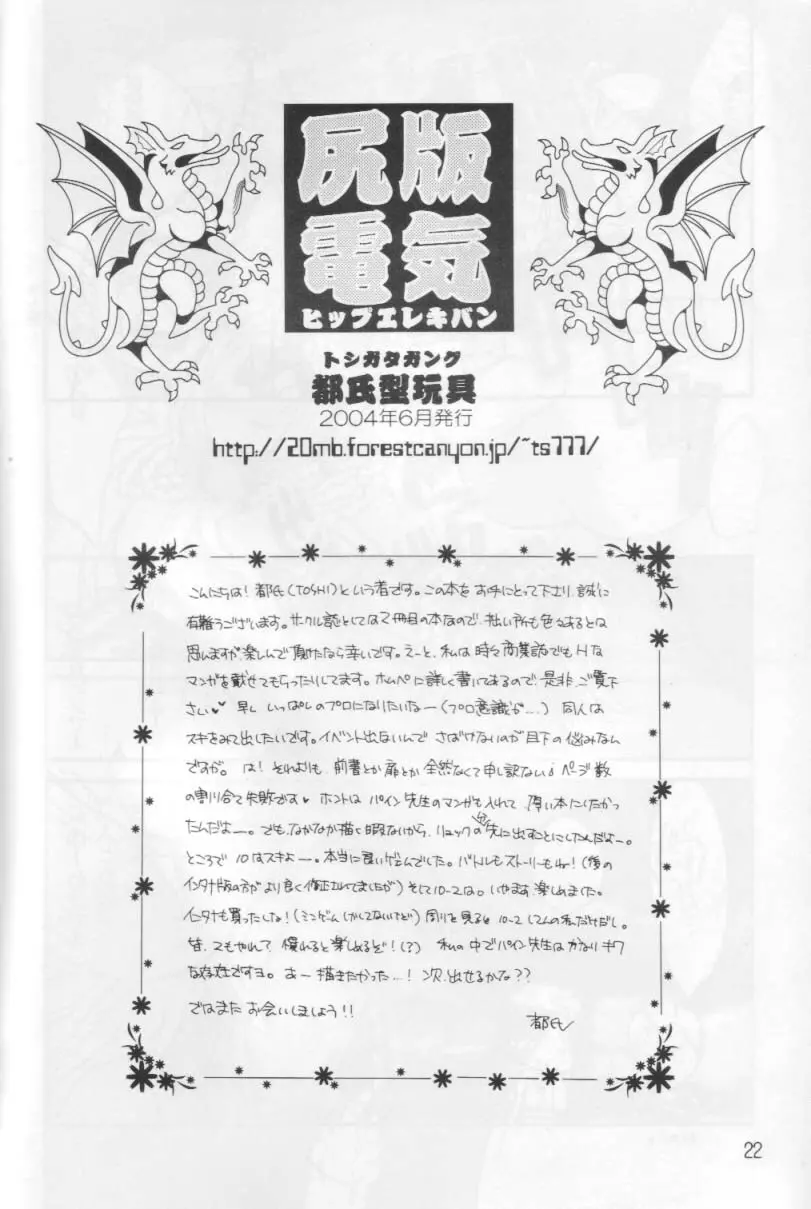 尻版
電気
ヒップエレキバン
トシガタガング
都氏型玩具
2004年6月発行
http://20mb.forestcanyon.jp/~ts777/
こんにちは！都氏(TOSHI)という者です。この本をお手にとって下さり、誠に
有難うございます。サークル誌としては2冊目の本なので、拙い所も色々あるとは
思いますが楽しんで頂けたなら幸いです。えーと、私は時々商業誌でもHな
マンガを載せてもらったりしてます。ホムペに詳しく書いてあるので是非ご覧下
さい♥♥ 早くいっぱしのプロになりたいなー(プロ意識が…) 同人は
スキをみて出したいです。イベント出ないんでさばけないのが目下の悩みなん
ですが。は！それよりも、前書とか扉とか全然なくて申し訳ない ページ数
の割り合て失敗です♥ ホントはパイン先生のマンガも入れて厚い本にしたかっ
たんだよー。でも、なかなか描く暇ないから、リュックのを先に出すことにしたんだよ〜。
ところで10はスキよー。本当に良いゲムでした。バトルもストーリーもね！(後の
インタナ版の方がより良く修正されてましたが) そして10-2は。いやまず楽しめました。
インタナも買ったしな！(ミニゲームしかしてないけど) 周りを見ると10-2
の私だけだし。
皆、2もやれて 慣れると楽しめるぞ！(?) 私の中でパイン先生はかなりキワ
な存在ですヨ。あー描きたかった…！次、出せるかな??
ではまたお会いしましょう!!
都氏
22